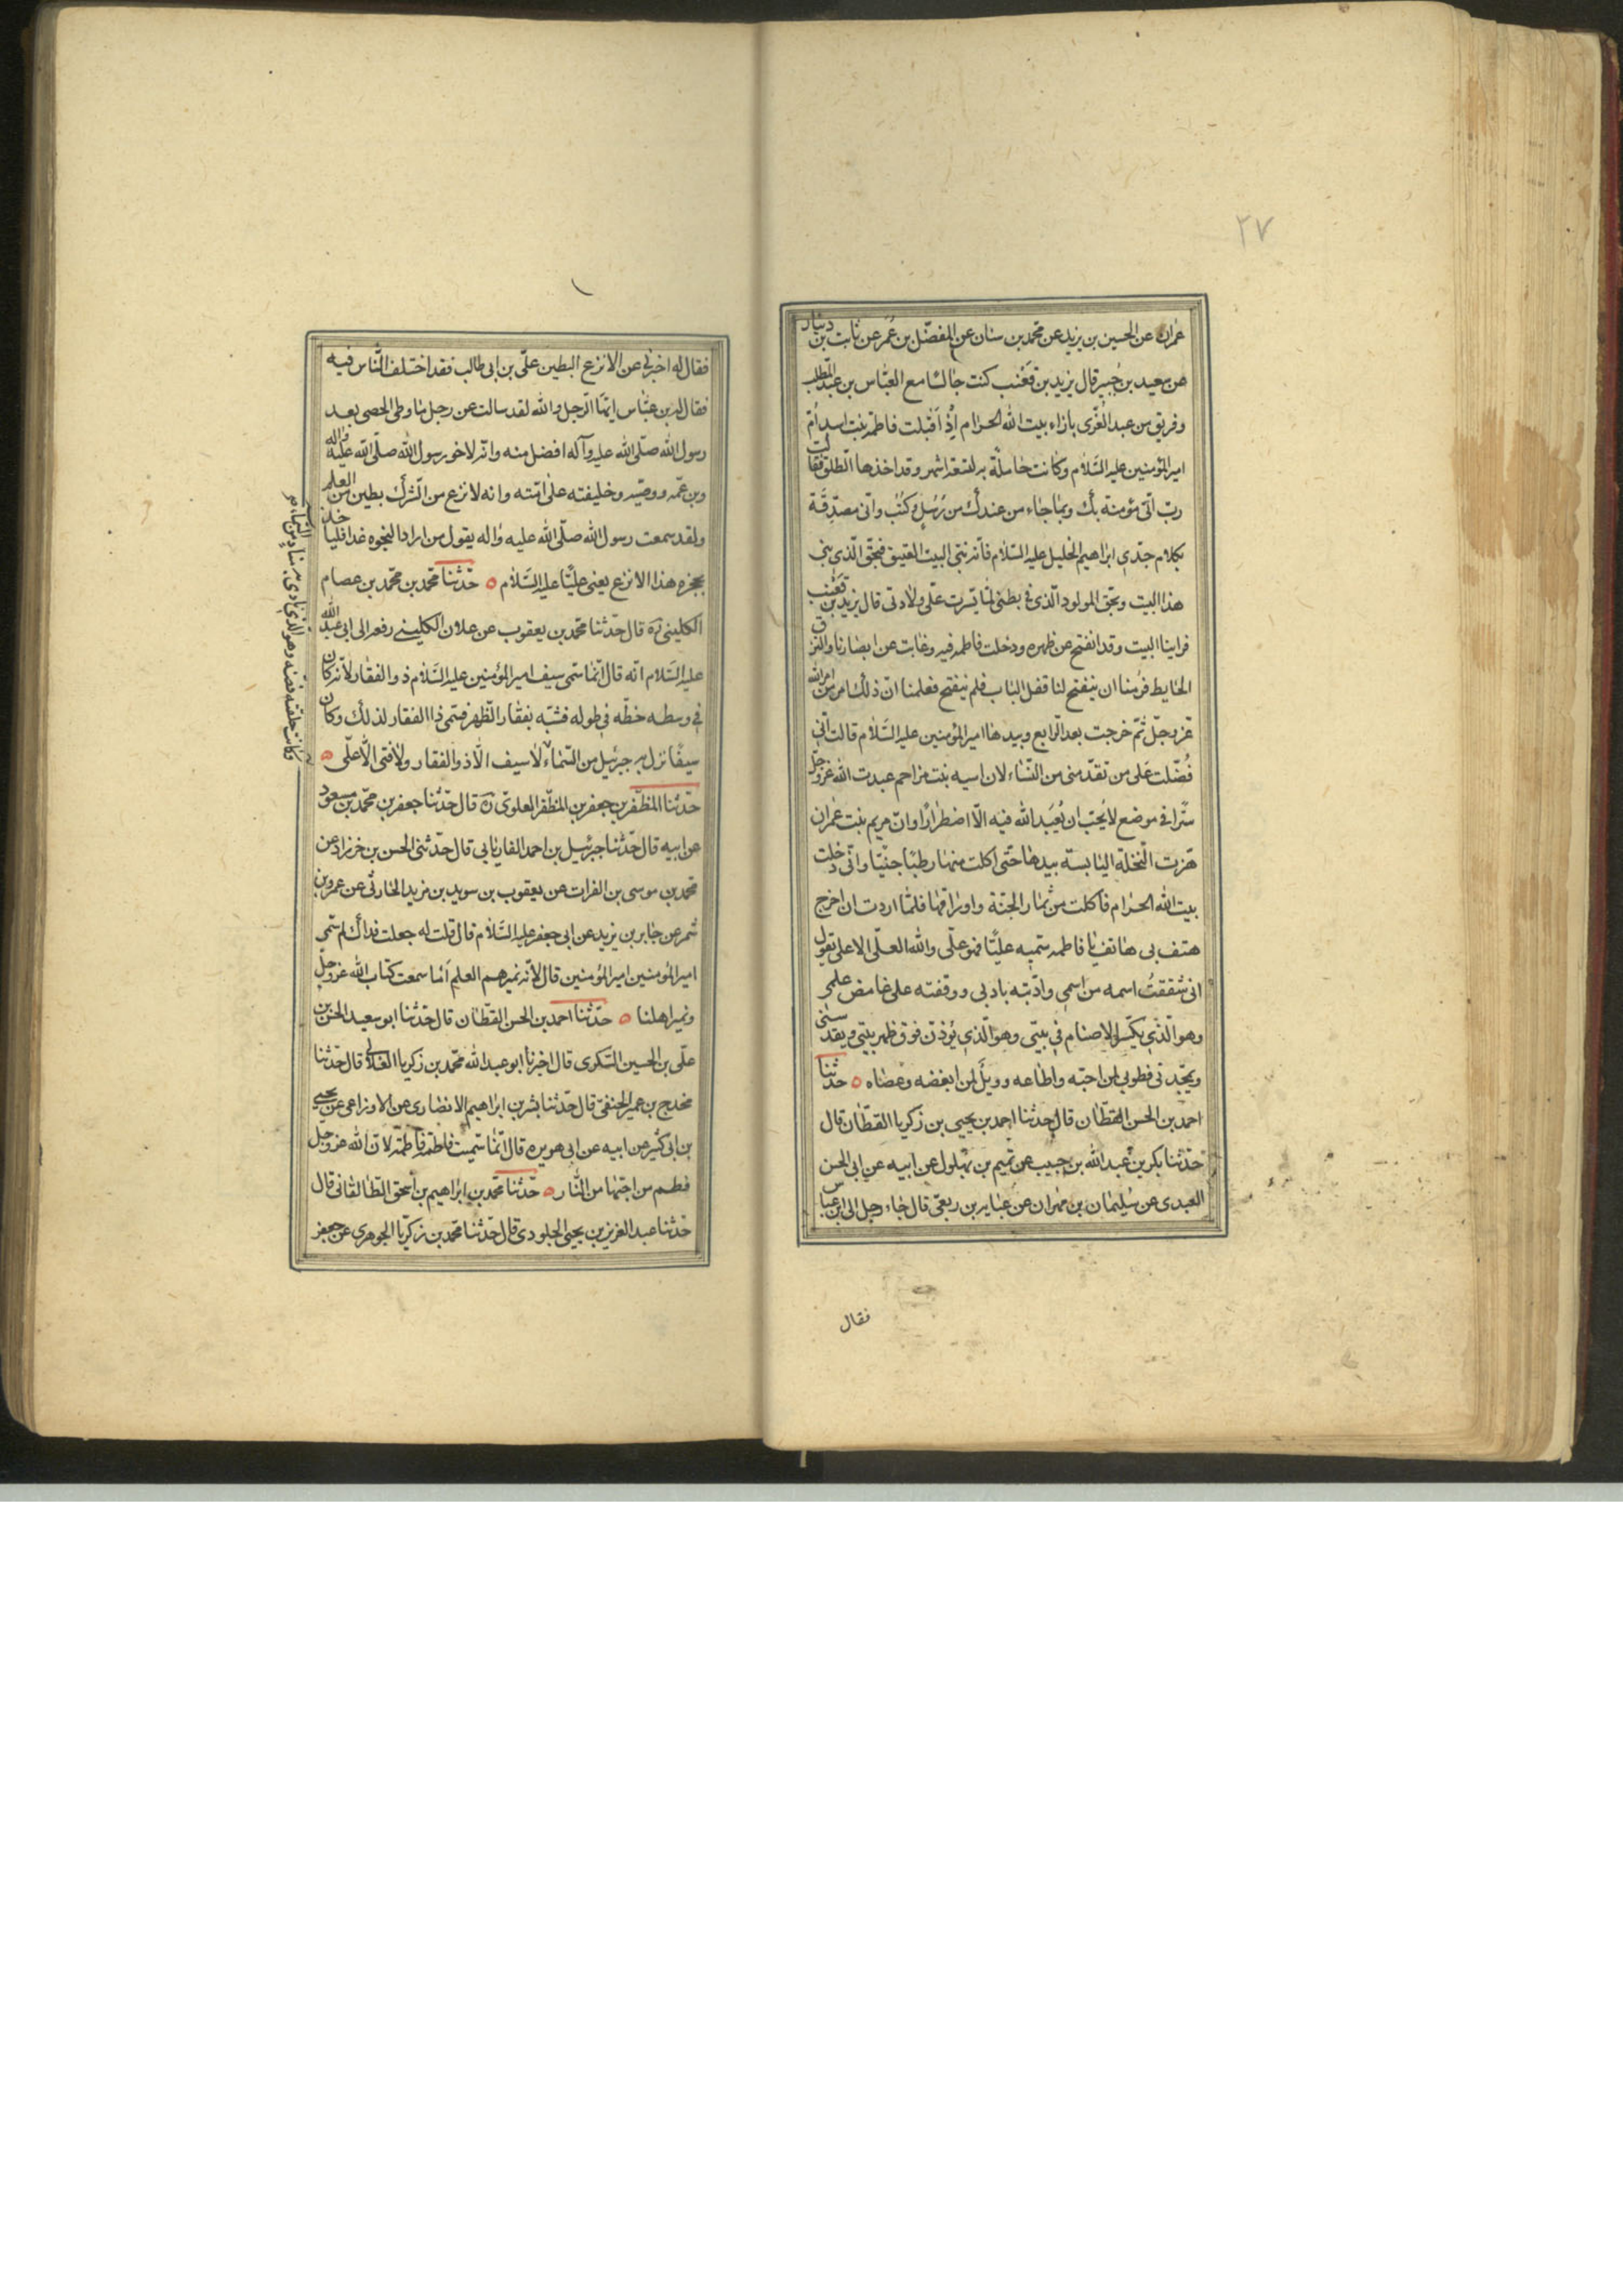 ٢٧
عمران عن الحسين بن يزيد عن محمد بن سنان عن المفضّل بن عُمَر عن ثابت بن دينار
عن سعيد بن جُبير قال يزيد بن قَعْنَب كنت جالسًا مع العبّاس بن عبد المطلب
وفريق من عبد العُزّى بازاء بيت الله الحرام اِذْ اَقْبلت فاطمة بنت اسد اُمّ
امير المؤمنين عليه السَّلام وكانت حاملة به لتسعة اشهر وقد اخذها الطلق فقالت
ربّ انّى مؤمنة بك وبما جاء من عندك من رُسُل وكُتُب وانّى مصدّقة
بكلام جدّى ابراهيم الخليل عليه السّلام فانّه بنى البيت العتيق فبحقّ الّذى بنى
هذا البيت وبحقّ المولود الّذى فى بطنى لمّا يسّرت علَىّ ولادتى قال يزيد بن قَعْنَب
فراينا البيت وقد انفتح عن ظهره ودخلت فاطمه فيه وغابت عن ابصارنا والتزق
الحايط فرُمنا ان ينفتح لنا قفل الباب فلم ينفتح فعلمنا انّ ذلك امر من امر الله
عزّ وجلّ ثمّ خرجت بعد الرّابع وبيدها امير المؤمنين عليه السَّلام قالت انّى
فُضّلت على من تقدّمنى من النّساء لان اسيه بنت مزاحم عبدت الله عزّ وجلّ
سرًّا فى موضع لا يُحبّ ان يُعبَد الله فيه الّا اضطرارًا وانّ مريم بنت عمران
هزت النّخلة اليابسة بيدها حتّى اكلت منها رطبًا جنيّا وانّى دخلت
بيت الله الحرام فاكلت من ثمار الجنّة واوراقها فلمّا اردت ان اخرج
هتف بى هاتف يا فاطمه سمّيه عليًّا فهو علّى والله العلّى الاعلى يقول
انى شققتُ اسمه من اسمى وادّبته بادبى ووقفته على غامض علمى
وهو الّذى يكسّر الاصنام فى بيتى وهو الّذى يُؤذّن فوق ظهر بيتى ويقدّسنى
ويمجّدنى فطوبى لمن احبّه واطاعه وويلٌ لمن ابغضه وعصاه ه حدّثنا
احمد بن الحسن القطّان قال حدثنا احمد بن يحيى بن زكريا القطّان قال
حدّثنا بكر بن عبد الله بن حبيب عن تميم بن بُهلول عن ابيه عن ابى الحسن
العبدى عن سُليمان بن مهران عن عبايه بن ربعىّ قال جاء رجل الى ابن عباس
فقال
فقال له اخبرنى عن الانزع البطين علىّ بن ابى طالب فقد اختلف النّاس فيه
فقال له بن عبّاس ايّها الرّجل والله لقد سالت عن رجل ما وطى الحصى بعد
رسول الله صلّى الله عليه وآله افضل منه وانّه لاخو رسول الله صلّى الله عليه واله
وبن عمّه ووصيّه وخليفته على امّته وانه لانزع من الشّرك بطين من العلم
ولقد سمعت رسول الله صلّى الله عليه واله يقول من اراد النجوه غدا فلياخذ
بحجزه هذا الانزع يعنى عليًّا عليه السَّلام ه حدّثنا محمّد بن محمّد بن عصام
الكلينى ره قال حدّثنا محمّد بن يعقوب عن علان الكلينى رفعه الى ابى عبد الله
عليه السَّلام انّه قال انّما سمّى سيف امير المؤمنين عليه السَّلام ذو الفقار لانّه كان
فى وسطه خطّه فى طوله فشبّه بفقار الظّهر فسمّى ذا الفقار لذلك وكان
سيفًا نزل به جبرئيل من السّماء لا سيف الّا ذو الفقار ولا فتى الّا علّى ه
وكانت حلقته فضّه وهو الّذى نادى به مناد من السّماء
حدّثنا المظفّر بن جعفر بن المظفّر العلوىّ ره قال حدّثنا جعفر بن محمّد بن مسعود
عن ابيه قال حدّثنا جبرئيل بن احمد الفاريابى قال حدّثنى الحسن بن خرزاد عن
محمّد بن موسى بن الفرات عن يعقوب بن سويد بن مزيد الحارثى عن عمرو بن
شمر عن جابر بن يزيد عن ابى جعفر عليه السَّلام قال قلت له جعلت فداك لم سمّى
امير المؤمنين امير المؤمنين قال لانّه يميرهم العلم اَما سمعت كتاب الله عزّ وجلّ
ونمير اهلنا ه حدّثنا احمد بن الحسن القطّان قال حدّثنا ابو سعيد الحسن بن
علّى بن الحسين السّكرى قال اخبرنا ابو عبد الله محمّد بن زكريا الغلابى قال حدّثنا
مخدج بن عمير الحنفىّ قال حدّثنا بشر بن ابراهيم الانصارى عن الاوزاعى عن يحيى
بن ابى كثير عن ابيه عن ابى هريره قال انّما سمّيت فاطمة فاطمة لانّ الله عزّ وجل
فطم من احبّها من النّار ه حدّثنا محمّد بن ابراهيم بن اسحق الطّالقانى قال
حدّثنا عبد العزيز بن يحيى الجلودى قال حدّثنا محمّد بن زكريّا الجوهرى عن جعفر